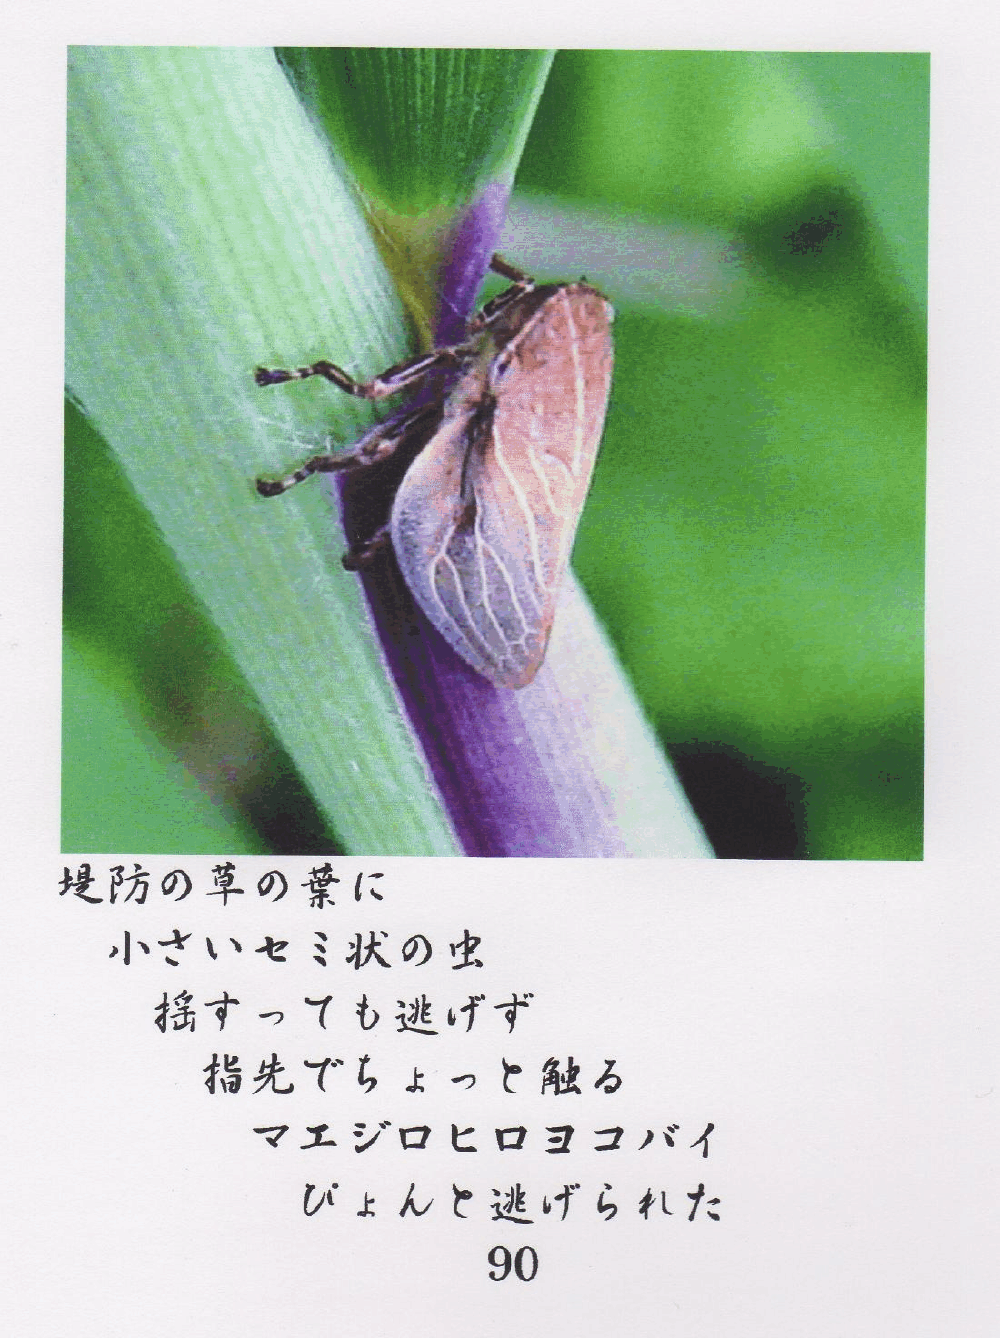 堤防の草の葉に
小さいセミ状の虫
揺すっても逃げず
指先でちょっと触る
マエジロヒロヨコバイ
ぴょんと逃げられた
90